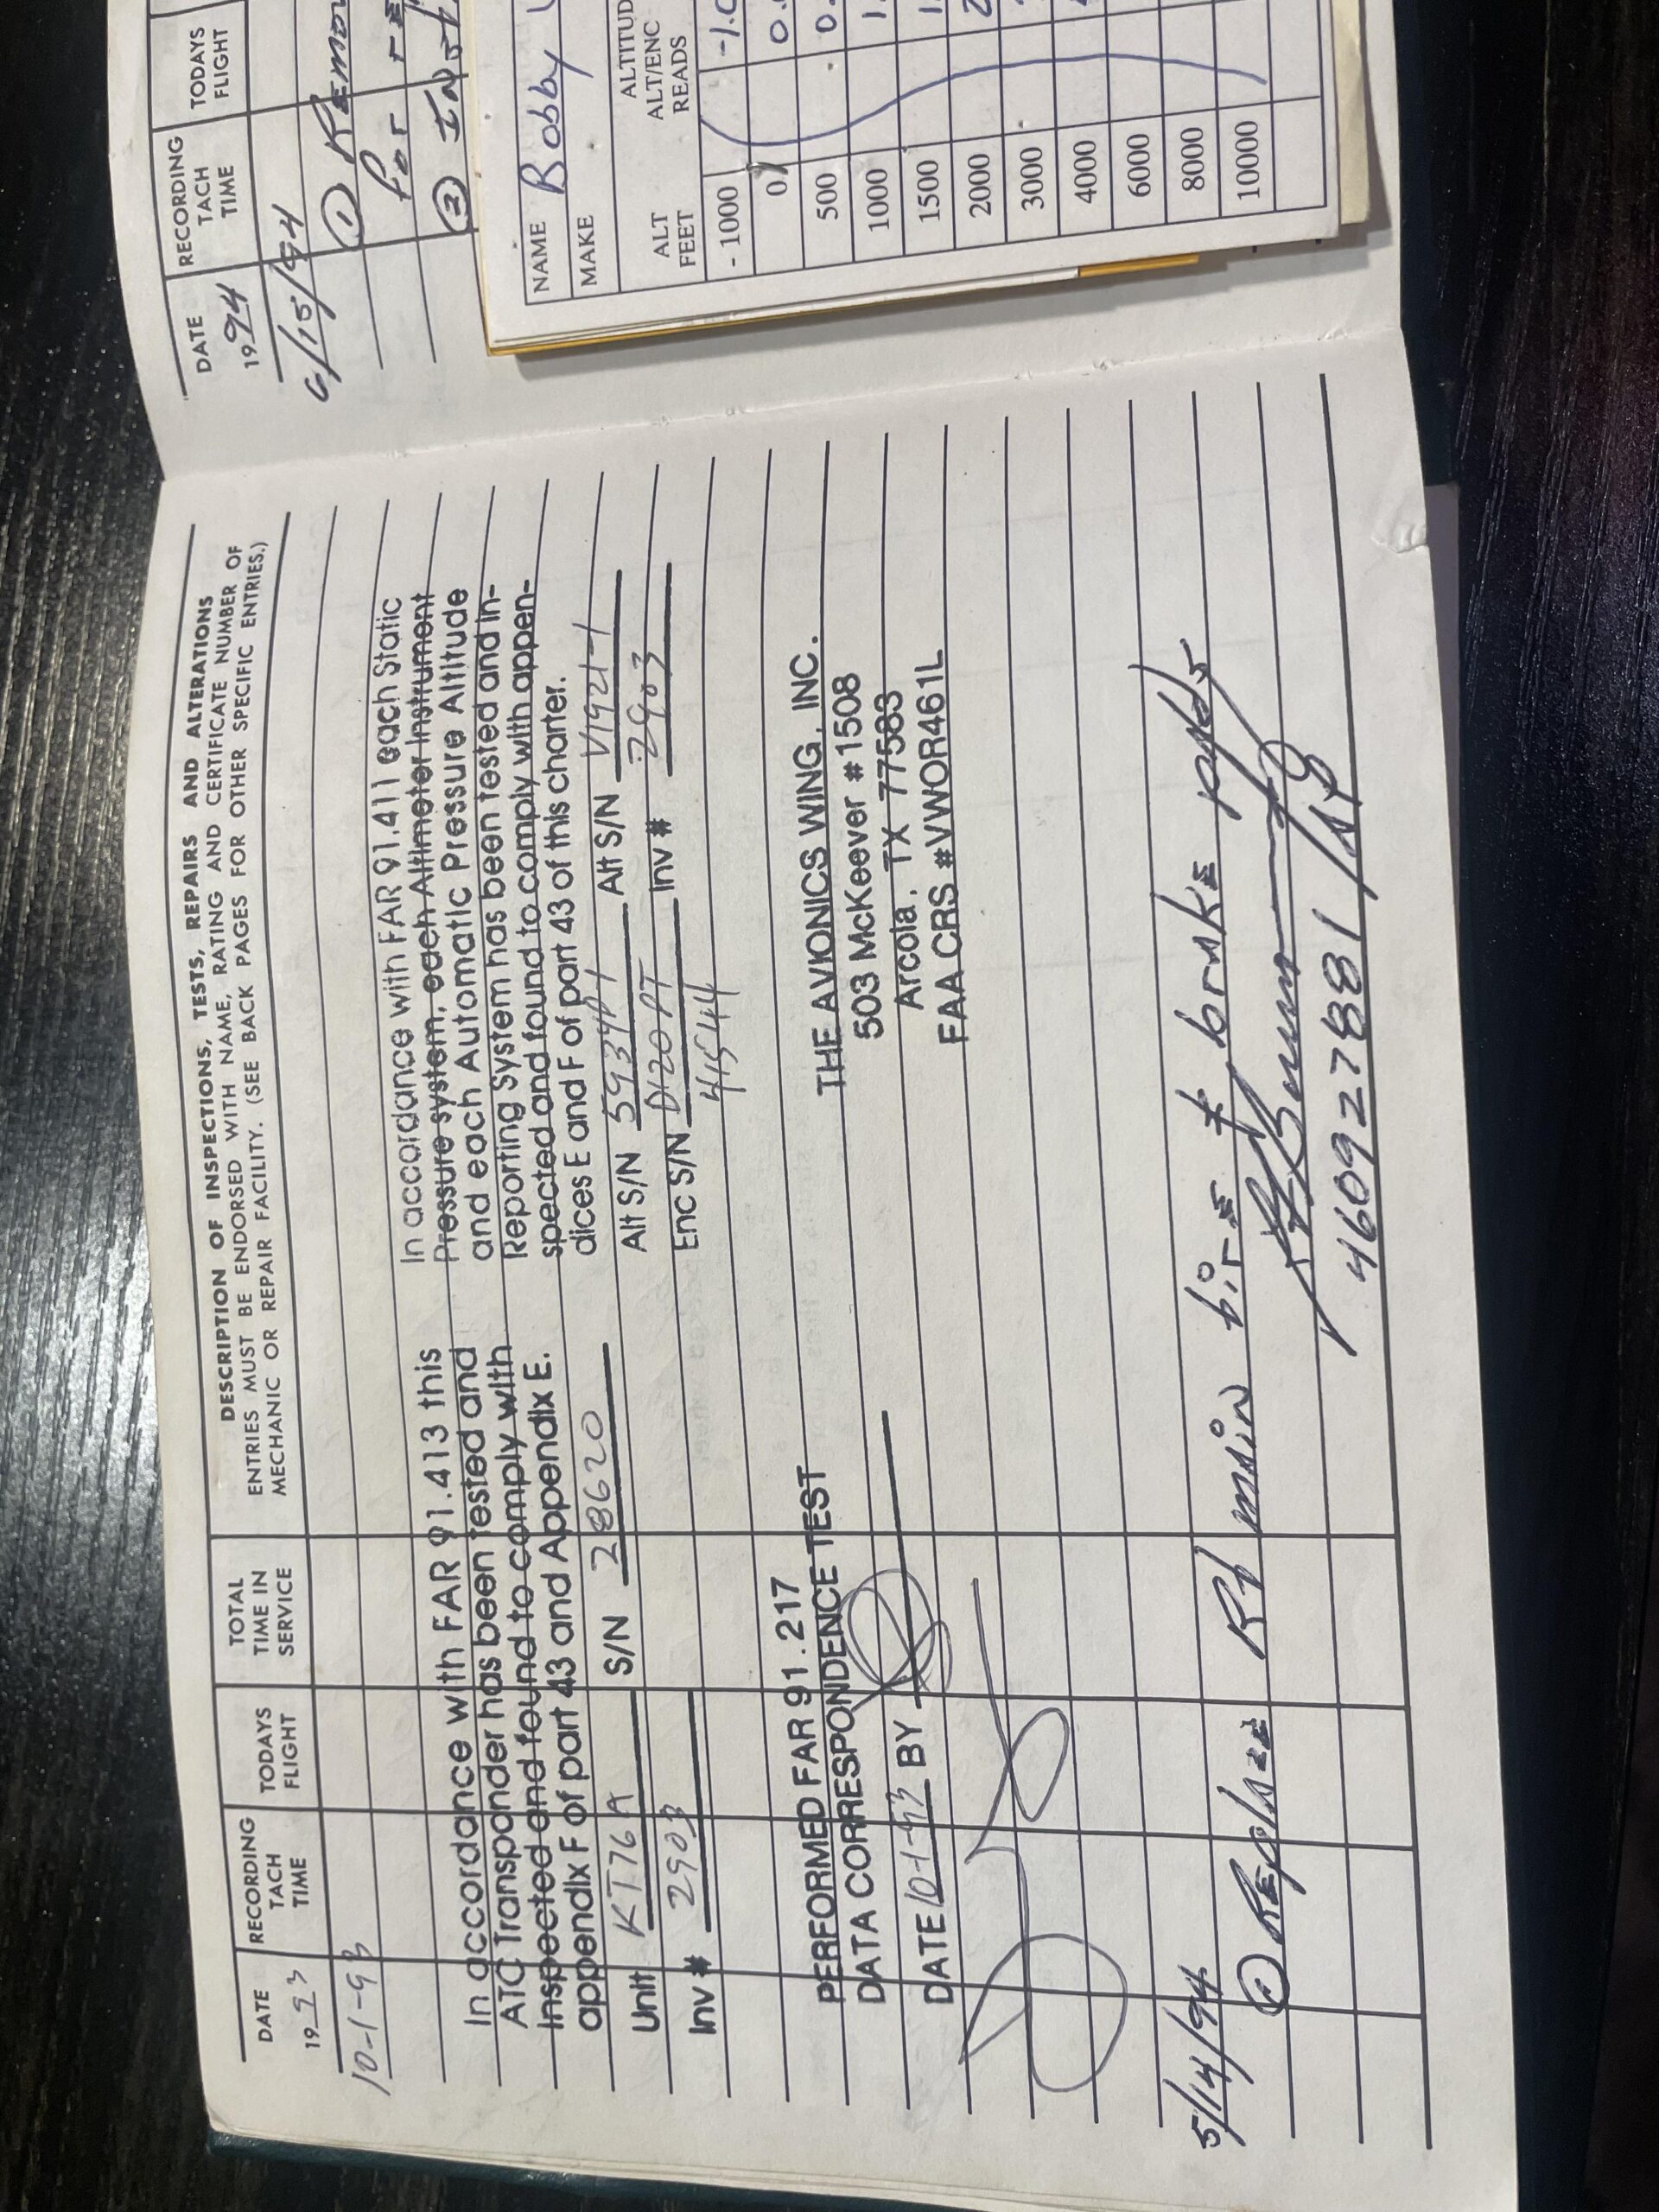 DATE
19 93
RECORDING
TACH
TIME
TODAYS
FLIGHT
TOTAL
TIME IN
SERVICE
DESCRIPTION OF INSPECTIONS, TESTS, REPAIRS AND ALTERATIONS
ENTRIES MUST BE ENDORSED WITH NAME, RATING AND CERTIFICATE NUMBER OF
MECHANIC OR REPAIR FACILITY. (SEE BACK PAGES FOR OTHER SPECIFIC ENTRIES.)
10-1-93
In accordance with FAR 91.413 this
ATC Transponder has been tested and
Inspected and found to comply with
appendix F of part 43 and Appendix E.
Unit KT76A S/N 28620
Inv # 2903
In accordance with FAR 91.411 each Static
Pressure system, each Altimeter Instrument
and each Automatic Pressure Altitude
Reporting System has been tested and in-
spected and found to comply with appen-
dices E and F of part 43 of this charter.
Alt S/N 5934P1 Alt S/N V1921-1
Enc S/N D120PT Inv # 2903
41544
PERFORMED FAR 91.217
DATA CORRESPONDENCE TEST
DATE 10-1-93 BY
THE AVIONICS WING, INC.
503 McKeever #1508
Arcola, TX 77583
FAA CRS #VWOR461L
5/14/94
① Replaced Rt main tire & brake pads
460927881 IA
DATE
1994
RECORDING
TACH
TIME
TODAYS
FLIGHT
6/15/94
①
for
②
NAME Bobby
MAKE
ALT
FEET
ALTITUD
ALT/ENC
READS
- 1000 -1.0
0
500
1000
1500
2000
3000
4000
6000
8000
10000